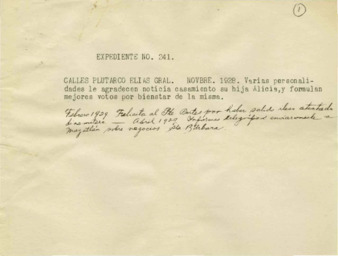 1
EXPEDIENTE NO. 241.
CALLES PLUTARCO ELIAS GRAL. NOVBRE. 1928. Varias personali-
dades le agradecen noticia casamiento su hija Alicia,y formulan
mejores votos por bienestar de la misma.
Febrero 1929. Felicita al Pte. Portes por haber salido ileso atentado
dinamitero — Abril 1929 Informes telegráficos
Mazatlán sobre negocios Sta Bárbara